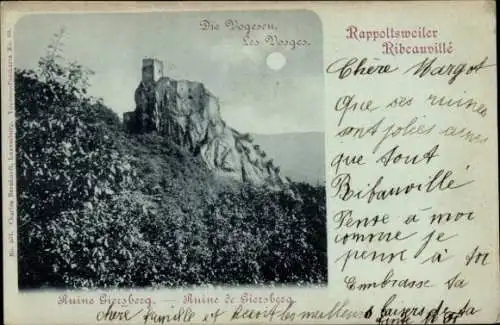 Die Vogesen.
Les Vosges.
Rappoltsweiler
Ribeauvillé
Chère Margot
Que ses ruines
sont jolies
que tout
Ribauvillé
Pense à moi
comme je
pense à
Embrasse ta
chère famille et
6 baisers de ta
Ruine Giersberg. — Ruine de Giersberg.
Charles Bernhoeft, Luxembourg.